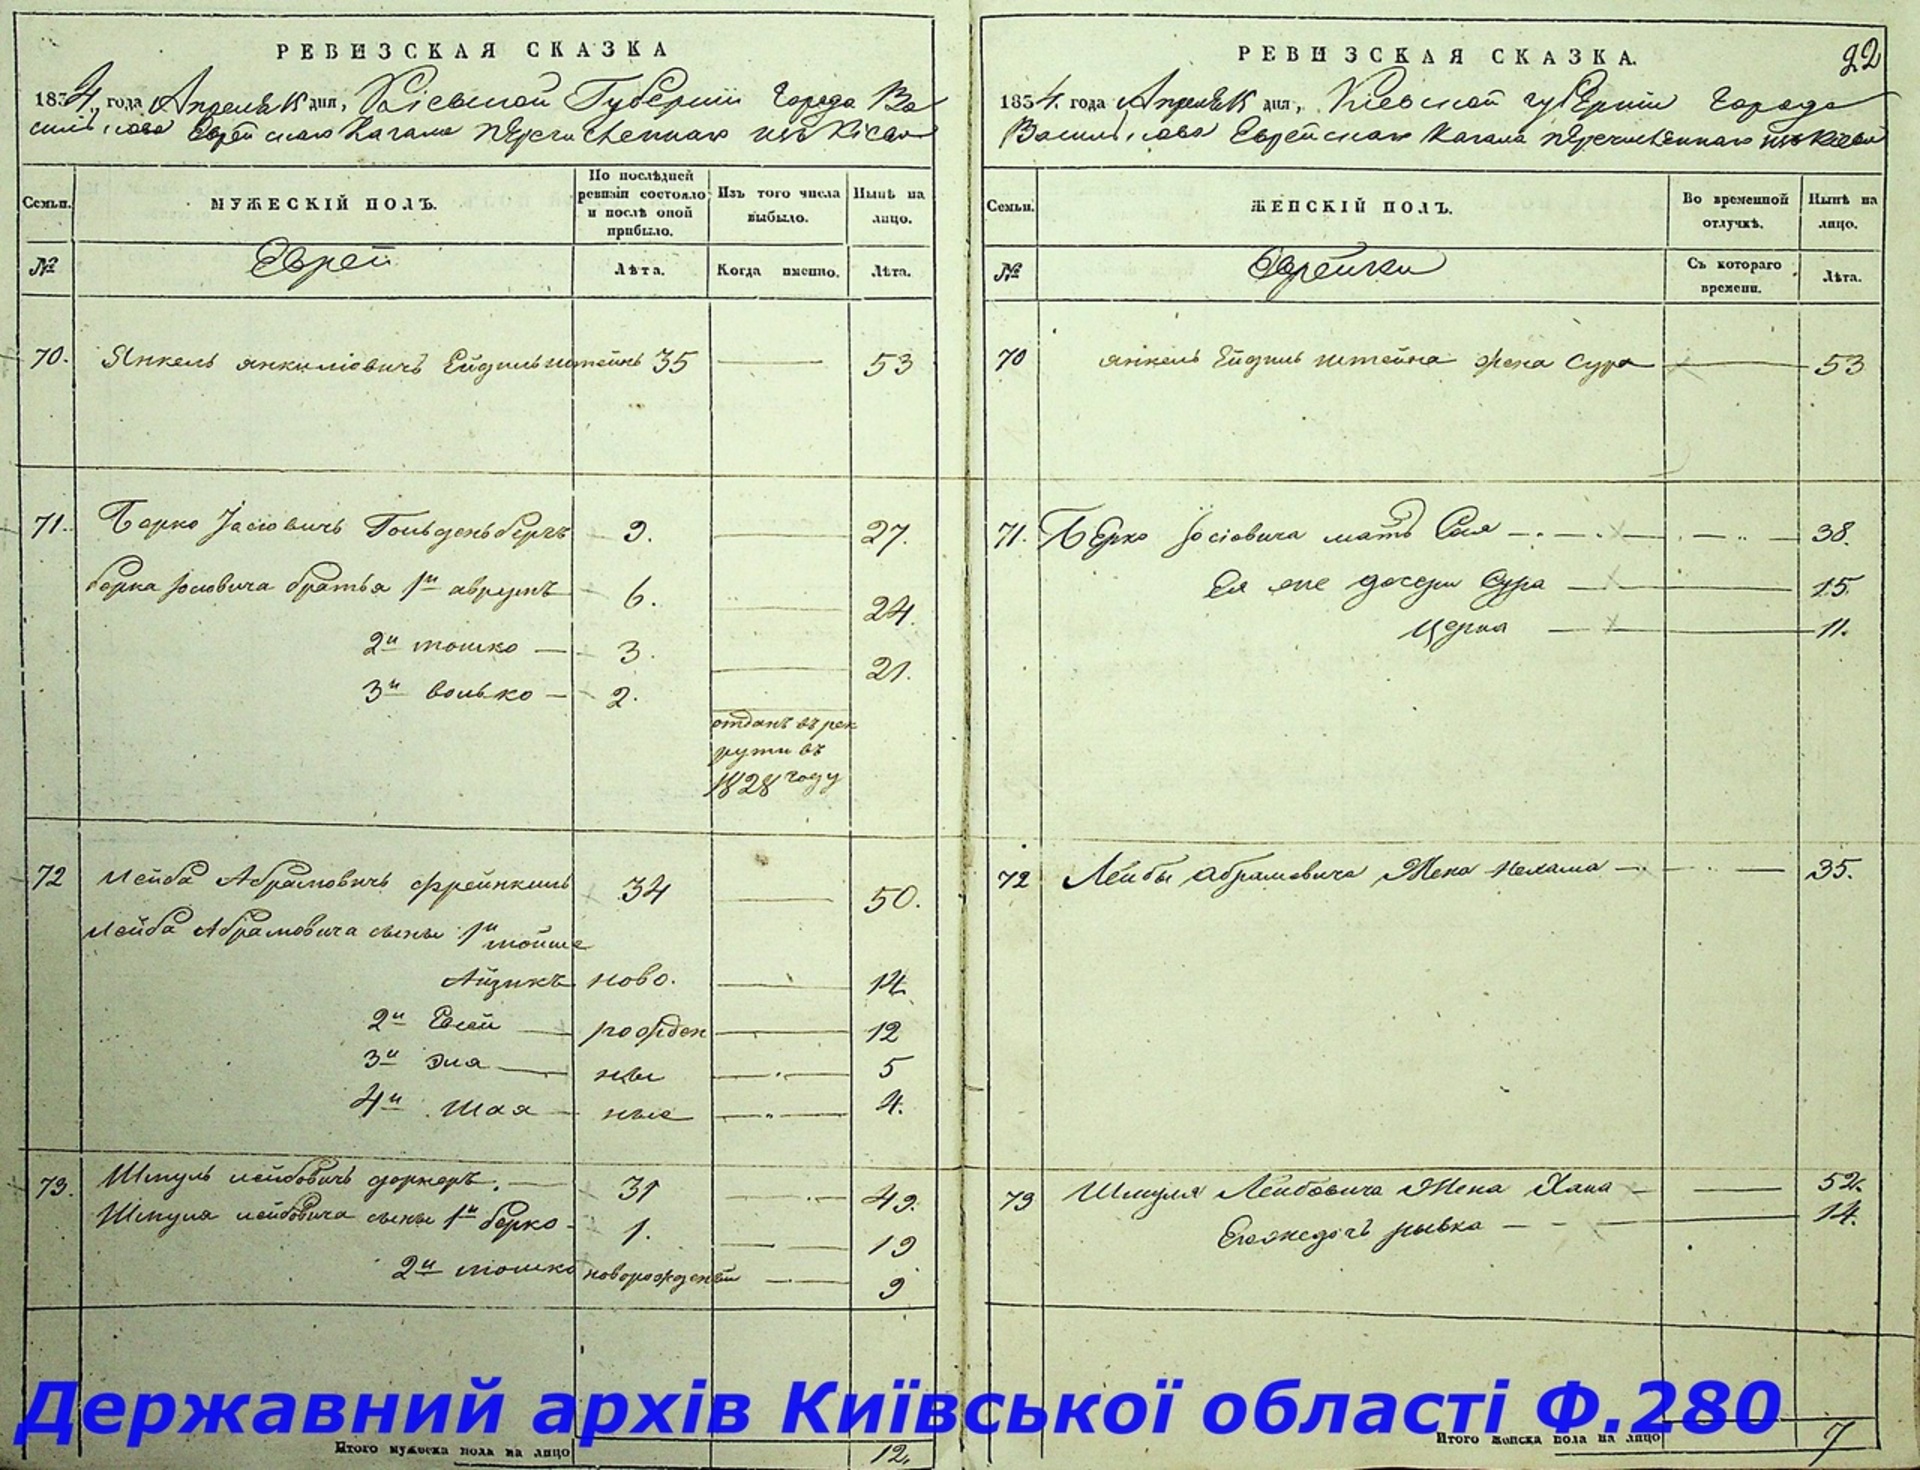 РЕВИЗСКАЯ СКАЗКА
1834 года Апреля 15 дня, Кіевской Губерніи города Ва
силькова Еврейскаго Кагала перечисленнаго изъ Кіева
Семьи. МУЖЕСКІЙ ПОЛЪ. По послѣдней ревизіи состояло и послѣ оной прибыло. Изъ того числа выбыло. Нынѣ на лицо.
№ Еврей Лѣта. Когда именно. Лѣта.
70. Янкель Янкиліовичъ Ейдильштейнъ 35 53
71. Берко Іосіовичъ Гольденьбергъ 9. 27.
Берка Іосіовича братья 1й аврумъ 6. 24.
2й мошко 3. 21.
3й волько 2.
отданъ въ рек
рути въ
1828 году
72 Лейба Абрамовичъ Френкиль 34 50.
Лейба Абрамовича сыны 1й мойше
Айзикъ ново. 14.
2й Евсей рожден 12
3й Эля ны 5
4й Шая ные 4.
73. Шмуль лейбовичъ форнеръ. 31 49.
Шмуля лейбовича сыны 1й берко 1. 19
2й мошко новорожденый 9
Итого мужеска пола на лицо 12.
РЕВИЗСКАЯ СКАЗКА. 22
1834. года Апреля 15 дня, Кіевской губерніи города
Василькова Еврейскаго Кагала перечисленнаго изъ Кіева
Семьи. ЖЕНСКІЙ ПОЛЪ. Во временной отлучкѣ. Нынѣ на лицо.
№ Еврейки Съ котораго времени. Лѣта.
70 янкель Ейдильштейна жена Сура 53
71. Берко Іосіовича мать Сося 38.
Ея же дочери Сура 15.
Церна 11.
72 Лейбы Абрамовича Жена Нехама 35.
73 Шмуля Лейбовича Жена Хана 52.
Егоже дочь рывка 14.
Итого женска пола на лицо 7
Державний архів Київської області Ф.280